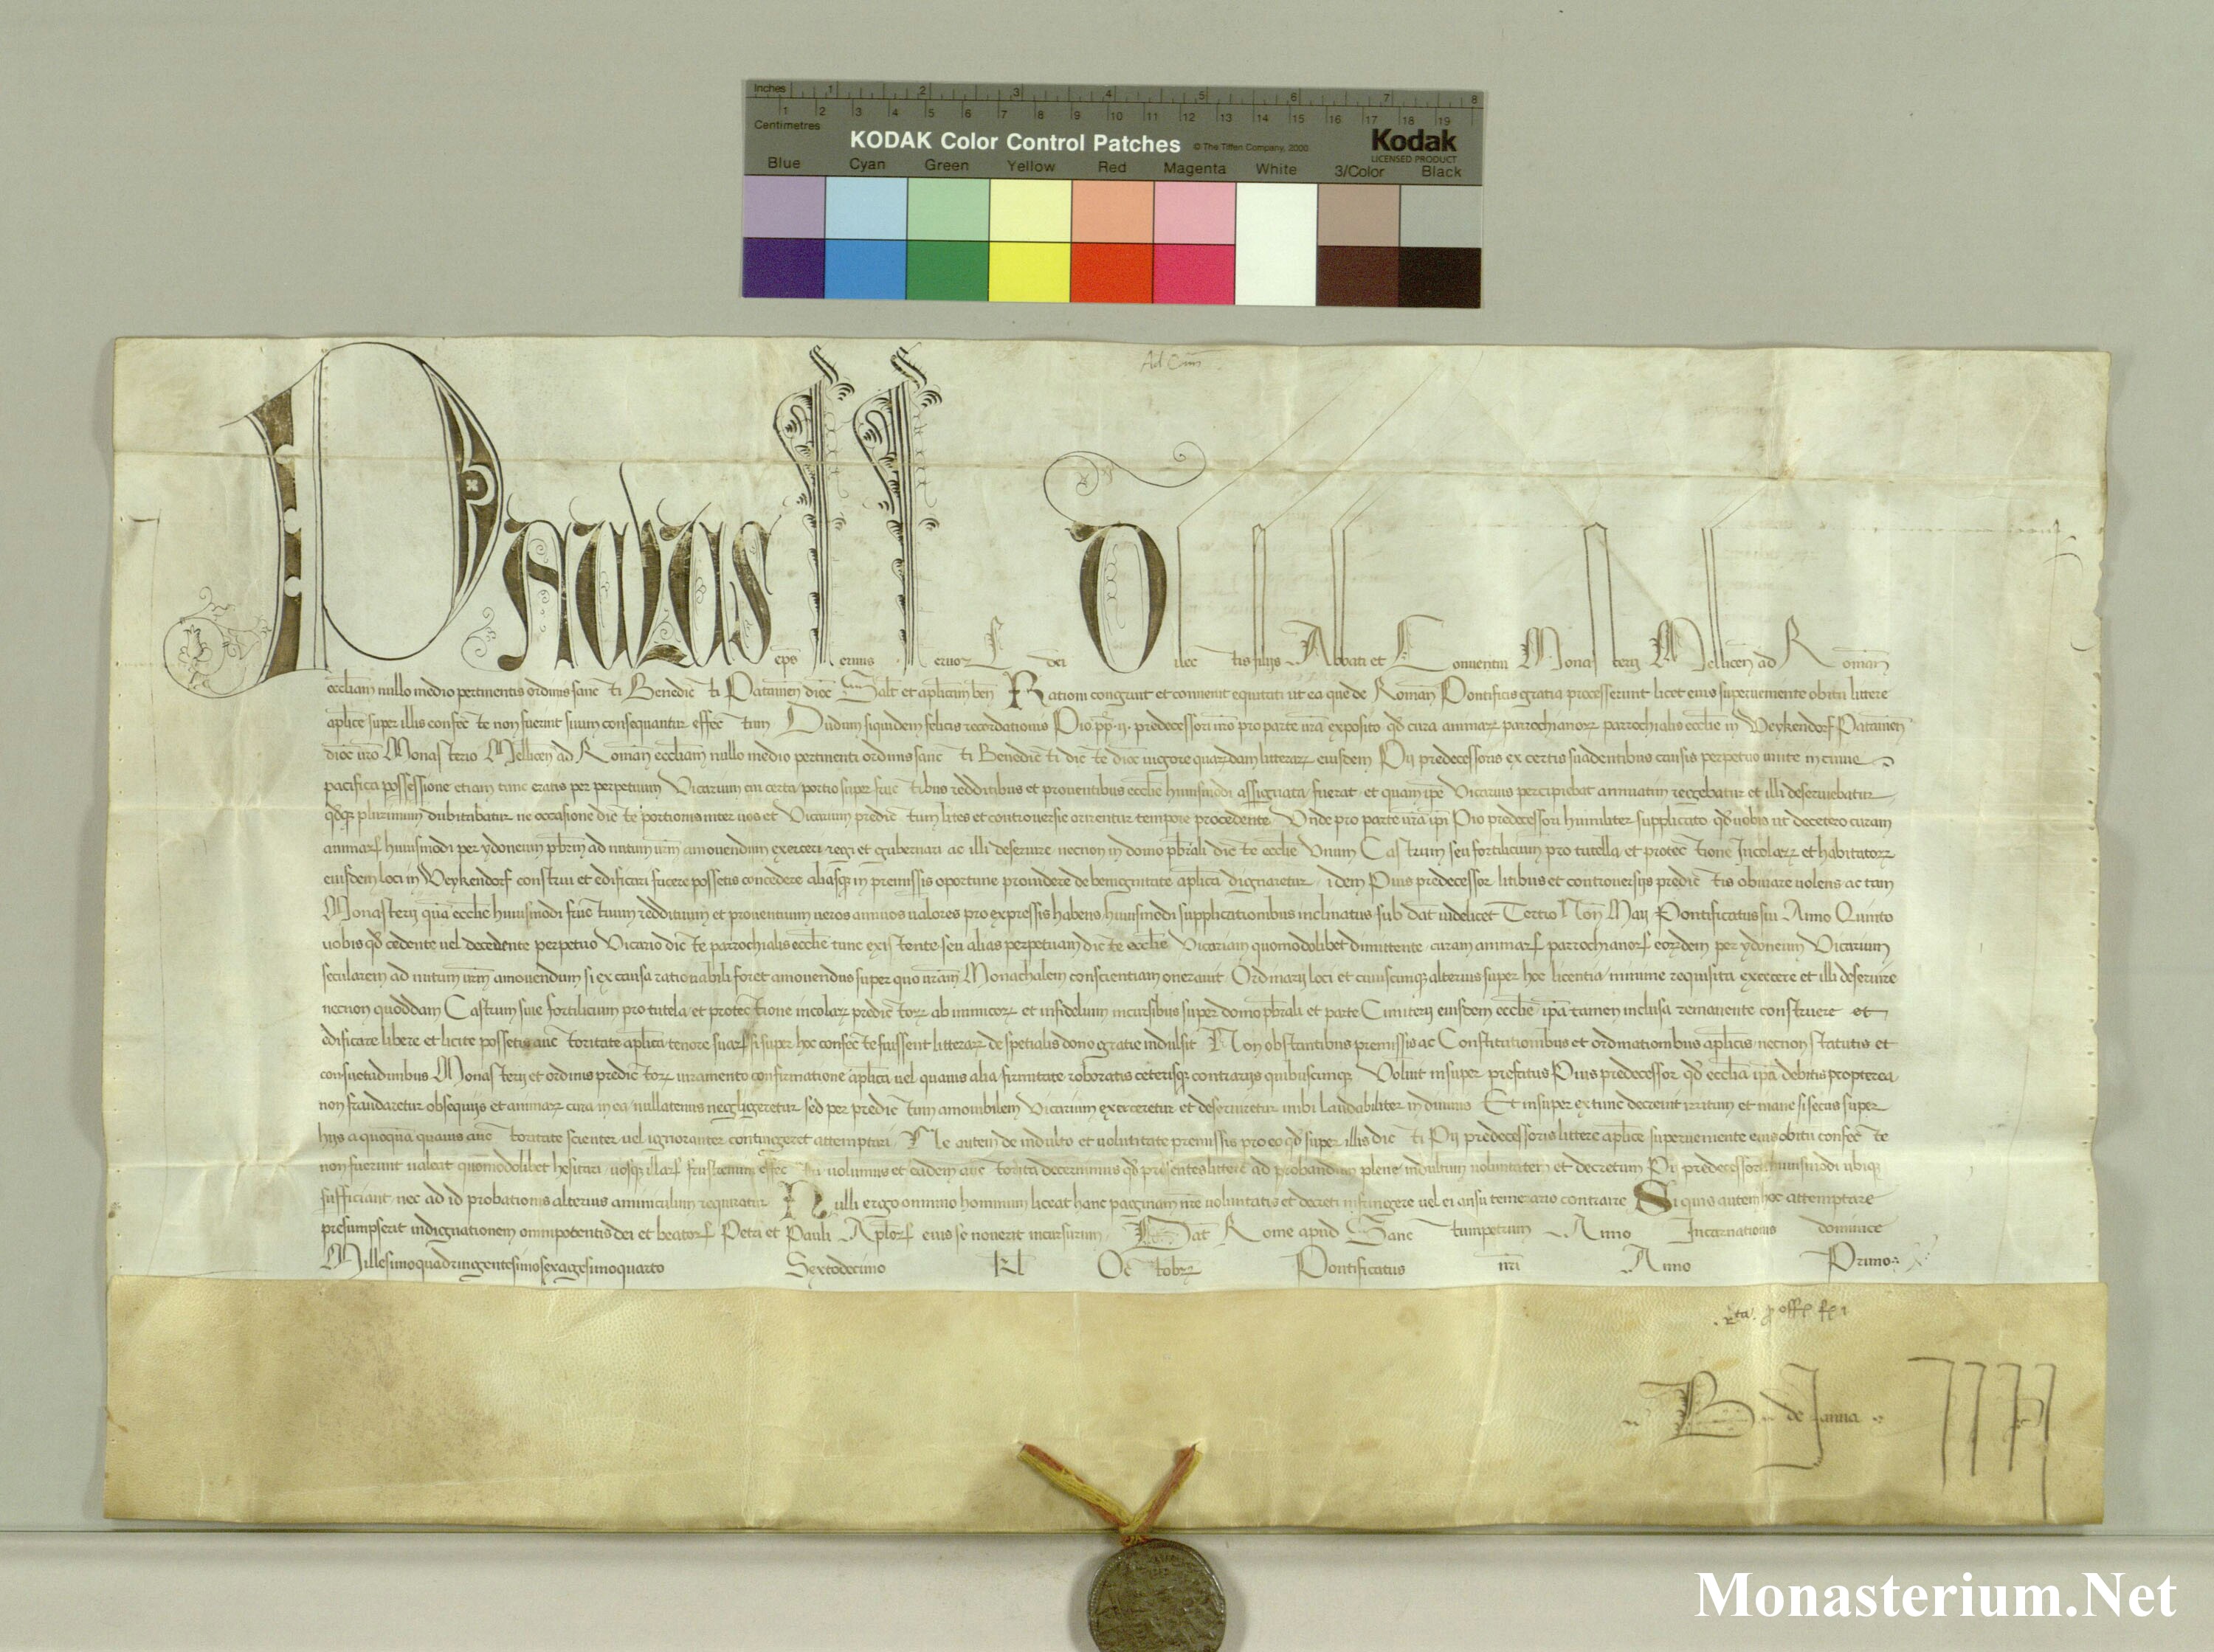 Inches 1 2 3 4 5 6 7 8
1 2 3 4 5 6 7 8 9 10 11 12 13 14 15 16 17 18 19
Centimetres
KODAK Color Control Patches © The Tiffen Company, 2000 Kodak
LICENSED PRODUCT
Blue Cyan Green Yellow Red Magenta White 3/Color Black
Paulus eps servus servorz dei Dilectis filijs Abbati et Conventui Monasterij Mellicen ad Roman
eccliam nullo medio pertinentis ordinis sancti Benedicti Patavien dioc Salt et aplicam ben Rationi congruit et convenit equitati ut ea que de Roman Pontificis gratia processerunt licet eius superveniente obitu littere
aplice super illis confecte non fuerint suum consequantur effectum Dudum siquidem felicis recordationis Pio pp ii predecessori nro pro parte vra exposito qd cura animarz parrochianorz parrochialis ecclie in Veykendorf Patavien
dioc vro Monasterio Mellicen ad Roman eccliam nullo medio pertinenti ordinis sancti Benedicti dicte dioc vigore quarzdam litterarz eiusdem Pij predecessoris ex certis suadentibus causis perpetuo unite in cuius
pacifica possessione etiam tunc eratis per perpetuum Vicarium cui certa portio super fructibus redditibus et proventibus ecclie huiusmodi assignata fuerat et quam ipe Vicarius percipiebat annuatim regebatur et illi deserviebatur
qdqz plurimum dubitabatur ne occasione dicte portionis inter vos et Vicarium predictum lites et controversie orirentur tempore procedente Unde pro parte vra ipi Pio predecessori humiliter supplicato qd vobis ut decetero curam
animarz huiusmodi per ydoneum pbrm ad nutum vrm amovendum exerceri regi et gubernari ac illi deservire necnon in domo pbrali dicte ecclie Unum Castrum seu fortilicium pro tutella et protectione Incolarz et habitatorz
eiusdem loci in Veykendorf construi et edificari facere possetis concedere aliasqz in premissis oportune providere de benignitate aplica dignaretur idem Pius predecessor litibus et controversijs predictis obviare volens ac tam
Monasterij qua ecclie huiusmodi fructuum reddituum et proventuum veros annuos valores pro expressis habens huiusmodi supplicationibus inclinatus sub dat videlicet Tertio Non Maij Pontificatus sui Anno Quinto
vobis qd cedente vel decedente perpetuo Vicario dicte parrochialis ecclie tunc existente seu alias perpetuam dicte ecclie Vicariam quomodolibet dimittente curam animarz parrochianorz eorzdem per ydoneum Vicarium
secularem ad nutum vrm amovendum si ex causa rationabili foret amovendus super quo vram Monachalem conscientiam oneravit Ordinarij loci et cuiuscunqz alterius super hoc licentia minime requisita exercere et illi deservire
necnon quoddam Castrum sive fortilicium pro tutela et protectione incolarz predictorz ab inimicorz et infidelium incursibus super domo pbrali et parte Cimiterij eiusdem ecclie ipa tamen inclusa remanente construere et
edificare libere et licite possetis auctoritate aplica tenore suarz si super hoc confecte fuissent litterarz de spetialis dono gratie indulsit Non obstantibus premissis ac Constitutionibus et ordinationibus aplicis necnon statutis et
consuetudinibus Monasterij et ordinis predictorz iuramento confirmatione aplica vel quavis alia firmitate roboratis ceterisqz contrarijs quibuscunqz Voluit insuper prefatus Pius predecessor qd ecclia ipa debitis propterea
non fraudaretur obsequijs et animarz cura in ea nullatenus negligeretur sed per predictum amovibilem Vicarium exerceretur et deserviretur inibi laudabiliter in divinis Et insuper extunc decrevit irritum et inane si secus super
hijs a quoqua quavis auctoritate scienter vel ignoranter contingeret attemptari Ne autem de indulto et voluntate premissis pro eo qd super illis dicti Pij predecessoris littere aplice superveniente eius obitu confecte
non fuerunt valeat quomodolibet hesitari vosqz illarz frustremini effectu volumus et eadem auctoritate decernimus qd presentes littere ad probandum plene indultum voluntatem et decretum Pij predecessoris huiusmodi ubiqz
sufficiant nec ad id probationis alterius amminiculum requiratur Nulli ergo omnino hominum liceat hanc paginam nre voluntatis et decreti infringere vel ei ausu temerario contraire Si quis autem hoc attemptare
presumpserit indignationem omnipotentis dei et beatorz Petri et Pauli Aplorz eius se noverit incursurum Dat Rome apud Sanctumpetrum Anno Incarnationis dominice
Millesimoquadringentesimosexagesimoquarto Sextodecimo kl Octobrz Pontificatus nri Anno Primo
B de Janna
Monasterium.Net